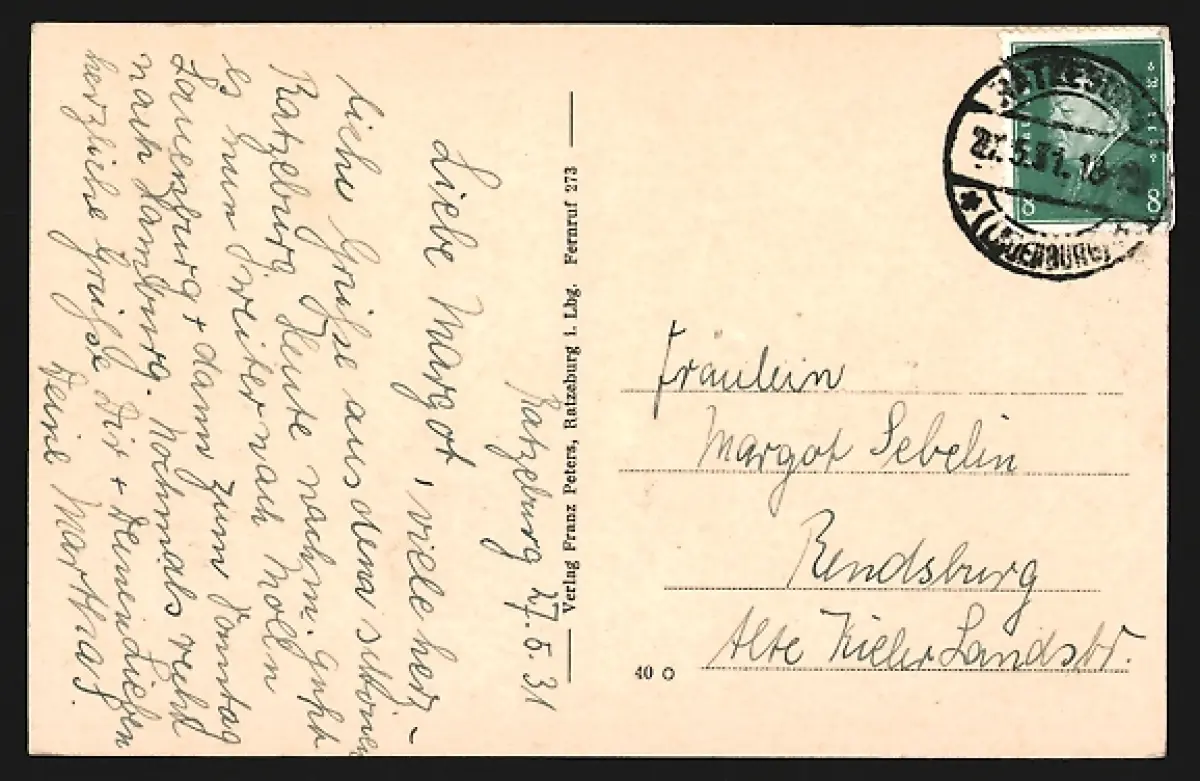 Ratzeburg 27.5.31
Liebe Margot, viele herz-
liche Grüße aus dem schönen
Ratzeburg. Heute nachm. geht
es nun weiter nach Mölln
Lauenburg + dann zum Sonntag
nach Hamburg. Nochmals recht
herzliche Grüße Dir + Deinen Lieben
Deine Martha
Verlag Franz Peters, Ratzeburg i. Lbg. Fernruf 273
RATZEBURG
27.5.31.18
(LAUENBURG)
8 8
Fräulein
Margot Sebelin
Rendsburg
Alte Kieler Landstr.
40